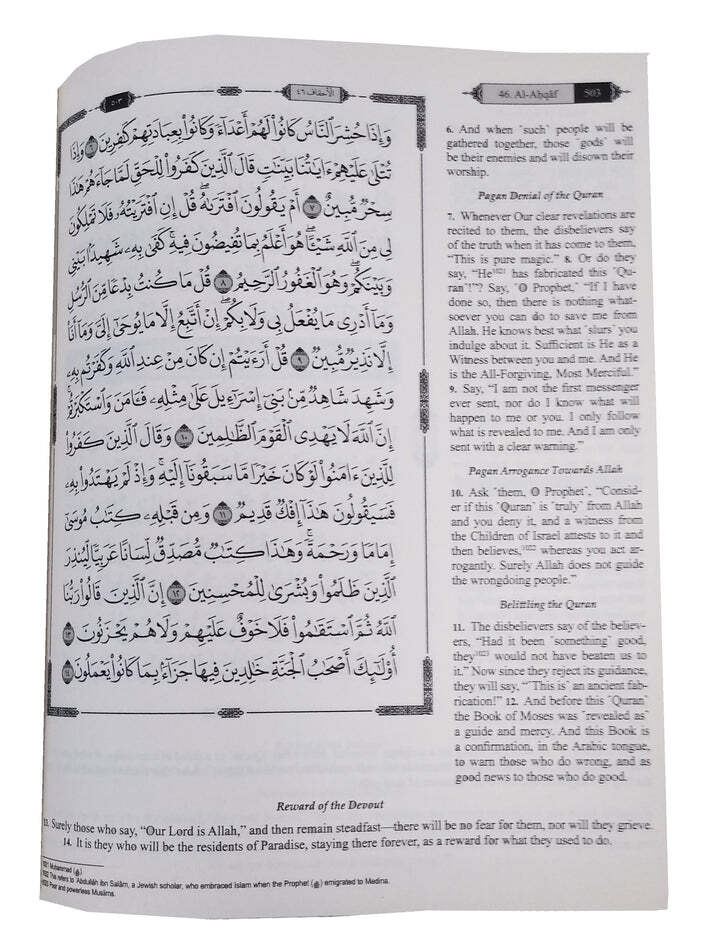 ٥٠٣
الأحقاف ٤٦
وَإِذَا حُشِرَ ٱلنَّاسُ كَانُوا۟ لَهُمْ أَعْدَآءً وَكَانُوا۟ بِعِبَادَتِهِمْ كَٰفِرِينَ ٦ وَإِذَا
تُتْلَىٰ عَلَيْهِمْ ءَايَٰتُنَا بَيِّنَٰتٍ قَالَ ٱلَّذِينَ كَفَرُوا۟ لِلْحَقِّ لَمَّا جَآءَهُمْ هَٰذَا
سِحْرٌ مُّبِينٌ ٧ أَمْ يَقُولُونَ ٱفْتَرَىٰهُ ۖ قُلْ إِنِ ٱفْتَرَيْتُهُۥ فَلَا تَمْلِكُونَ
لِى مِنَ ٱللَّهِ شَيْـًٔا ۖ هُوَ أَعْلَمُ بِمَا تُفِيضُونَ فِيهِ ۖ كَفَىٰ بِهِۦ شَهِيدًۢا بَيْنِى
وَبَيْنَكُمْ ۖ وَهُوَ ٱلْغَفُورُ ٱلرَّحِيمُ ٨ قُلْ مَا كُنتُ بِدْعًا مِّنَ ٱلرُّسُلِ
وَمَآ أَدْرِى مَا يُفْعَلُ بِى وَلَا بِكُمْ ۖ إِنْ أَتَّبِعُ إِلَّا مَا يُوحَىٰٓ إِلَىَّ وَمَآ أَنَا۠
إِلَّا نَذِيرٌ مُّبِينٌ ٩ قُلْ أَرَءَيْتُمْ إِن كَانَ مِنْ عِندِ ٱللَّهِ وَكَفَرْتُم بِهِۦ
وَشَهِدَ شَاهِدٌ مِّنۢ بَنِىٓ إِسْرَٰٓءِيلَ عَلَىٰ مِثْلِهِۦ فَـَٔامَنَ وَٱسْتَكْبَرْتُمْ ۖ
إِنَّ ٱللَّهَ لَا يَهْدِى ٱلْقَوْمَ ٱلظَّٰلِمِينَ ١٠ وَقَالَ ٱلَّذِينَ كَفَرُوا۟
لِلَّذِينَ ءَامَنُوا۟ لَوْ كَانَ خَيْرًا مَّا سَبَقُونَآ إِلَيْهِ ۚ وَإِذْ لَمْ يَهْتَدُوا۟ بِهِۦ
فَسَيَقُولُونَ هَٰذَآ إِفْكٌ قَدِيمٌ ١١ وَمِن قَبْلِهِۦ كِتَٰبُ مُوسَىٰٓ
إِمَامًا وَرَحْمَةً ۚ وَهَٰذَا كِتَٰبٌ مُّصَدِّقٌ لِّسَانًا عَرَبِيًّا لِّيُنذِرَ
ٱلَّذِينَ ظَلَمُوا۟ وَبُشْرَىٰ لِلْمُحْسِنِينَ ١٢ إِنَّ ٱلَّذِينَ قَالُوا۟ رَبُّنَا
ٱللَّهُ ثُمَّ ٱسْتَقَٰمُوا۟ فَلَا خَوْفٌ عَلَيْهِمْ وَلَا هُمْ يَحْزَنُونَ ١٣
أُو۟لَٰٓئِكَ أَصْحَٰبُ ٱلْجَنَّةِ خَٰلِدِينَ فِيهَا جَزَآءًۢ بِمَا كَانُوا۟ يَعْمَلُونَ ١٤
46. Al-Aḥqâf 503
6. And when ˹such˺ people will be
gathered together, those ˹gods˺ will
be their enemies and will disown their
worship.
Pagan Denial of the Quran
7. Whenever Our clear revelations are
recited to them, the disbelievers say
of the truth when it has come to them,
“This is pure magic.” 8. Or do they
say, “He1021 has fabricated this ˹Qu-
ran˺!”? Say, ˹O Prophet,˺ “If I have
done so, then there is nothing what-
soever you can do to save me from
Allah. He knows best what ˹slurs˺ you
indulge about it. Sufficient is He as a
Witness between you and me. And He
is the All-Forgiving, Most Merciful.”
9. Say, “I am not the first messenger
ever sent, nor do I know what will
happen to me or you. I only follow
what is revealed to me. And I am only
sent with a clear warning.”
Pagan Arrogance Towards Allah
10. Ask ˹them, O Prophet˺, “Consid-
er if this ˹Quran˺ is ˹truly˺ from Allah
and you deny it, and a witness from
the Children of Israel attests to it and
then believes,1022 whereas you act ar-
rogantly. Surely Allah does not guide
the wrongdoing people.”
Belittling the Quran
11. The disbelievers say of the believ-
ers, “Had it been ˹something˺ good,
they1023 would not have beaten us to
it.” Now since they reject its guidance,
they will say, “˹This is˺ an ancient fab-
rication!” 12. And before this ˹Quran˺
the Book of Moses was ˹revealed as˺
a guide and mercy. And this Book is
a confirmation, in the Arabic tongue,
to warn those who do wrong, and as
good news to those who do good.
Reward of the Devout
13. Surely those who say, “Our Lord is Allah,” and then remain steadfast—there will be no fear for them, nor will they grieve.
14. It is they who will be the residents of Paradise, staying there forever, as a reward for what they used to do.
1021 Muhammad (ﷺ)
1022 This refers to 'Abdullâh ibn Salâm, a Jewish scholar, who embraced Islam when the Prophet (ﷺ) emigrated to Medina.
1023 Poor and powerless Muslims.